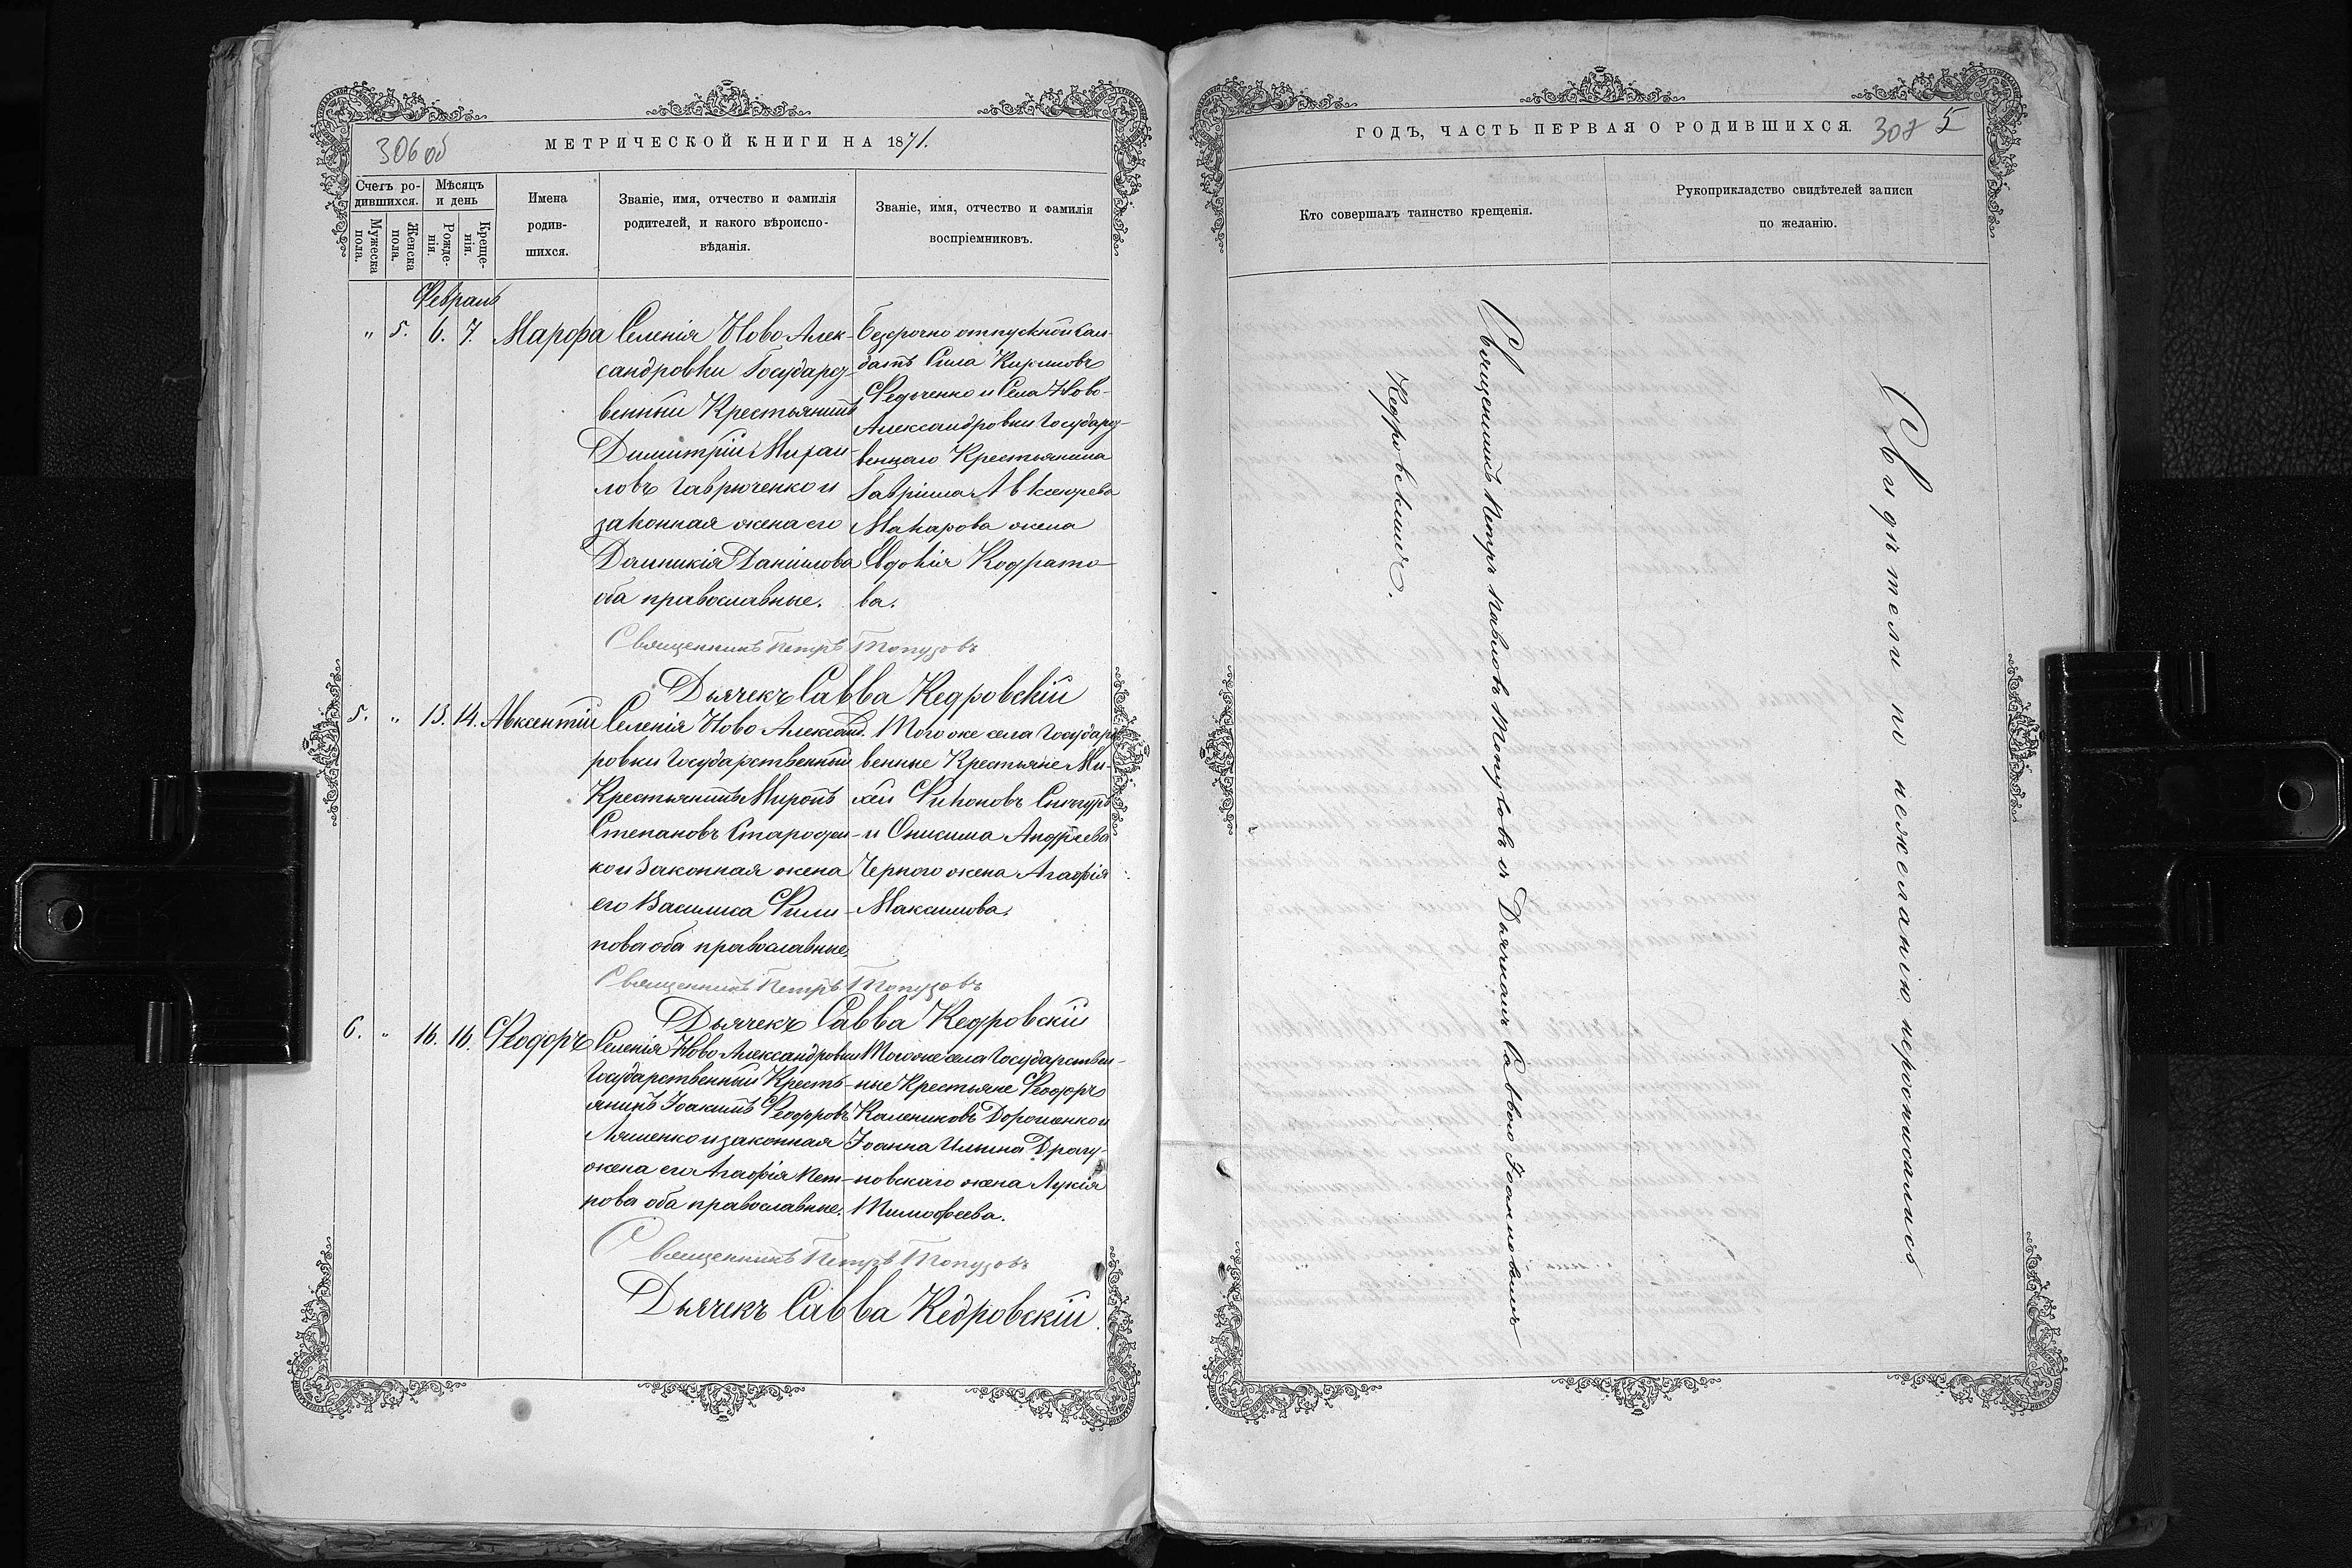 306 об
МЕТРИЧЕСКОЙ КНИГИ НА 1871.
Счетъ ро-
дившихся.
Мужеска
пола.
Женска
пола.
Мѣсяцъ
и день
Рожде-
нія.
Креще-
нія.
Имена
родив-
шихся.
Званіе, имя, отчество и фамилія
родителей, и какого вѣроиспо-
вѣданія.
Званіе, имя, отчество и фамилія
воспріемниковъ.
Февраль
" 5. 6. 7. Марфа
Селенія Ново Алек-
сандровки Государс-
венный Крестьянинъ
Димитрій Михаи-
ловъ Гаврюченко и
законная жена его
Домникія Даніилова
оба православные.
Безсрочно отпускной сол-
датъ Сила Кириловъ
Федченко и Села Ново-
Александровки Государс-
веннаго Крестьянина
Гавріила
Макарова жена
Евдокія Кодрато-
ва.
Священникъ Петръ Топузовъ
Дьячекъ Савва Кедровскій
5. " 13. 14. Авксентій
Селенія Ново Александ.
ровки Государственный
Крестьянинъ Миронъ
Степановъ Стародон-
ко и Законная жена
его Василиса Фили-
пова оба православные.
Того же села Государс-
венные Крестьяне Ми-
хей
и Онисима Андреева
Черного жена Агафія
Максимова.
Священникъ Петръ Топузовъ
Дьячекъ Савва Кедровскій
6. " 16. 16. Феодоръ
Селенія Ново Александровки
Государственный Кресть-
янинъ Іоакимъ Феодоровъ
Ляшенко и законная
жена его Агафія Пет-
рова оба православные.
Того же села Государствен-
ные Крестьяне Феодоръ
Калениковъ Дорошенко и
Іоанна Ильина Драгу-
новскаго жена Лукія
Тимофеева.
Священникъ Петръ Топузовъ
Дьячекъ Савва Кедровскій.
ГОДЪ, ЧАСТЬ ПЕРВАЯ О РОДИВШИХСЯ.
307 5
Кто совершалъ таинство крещенія.
Рукоприкладство свидѣтелей записи
по желанію.
Священникъ Петръ Павловъ Топузовъ и Дьячкомъ Саввою Іоакимовымъ
Кедровскимъ.
Свидѣтели по нежеланію нерописались